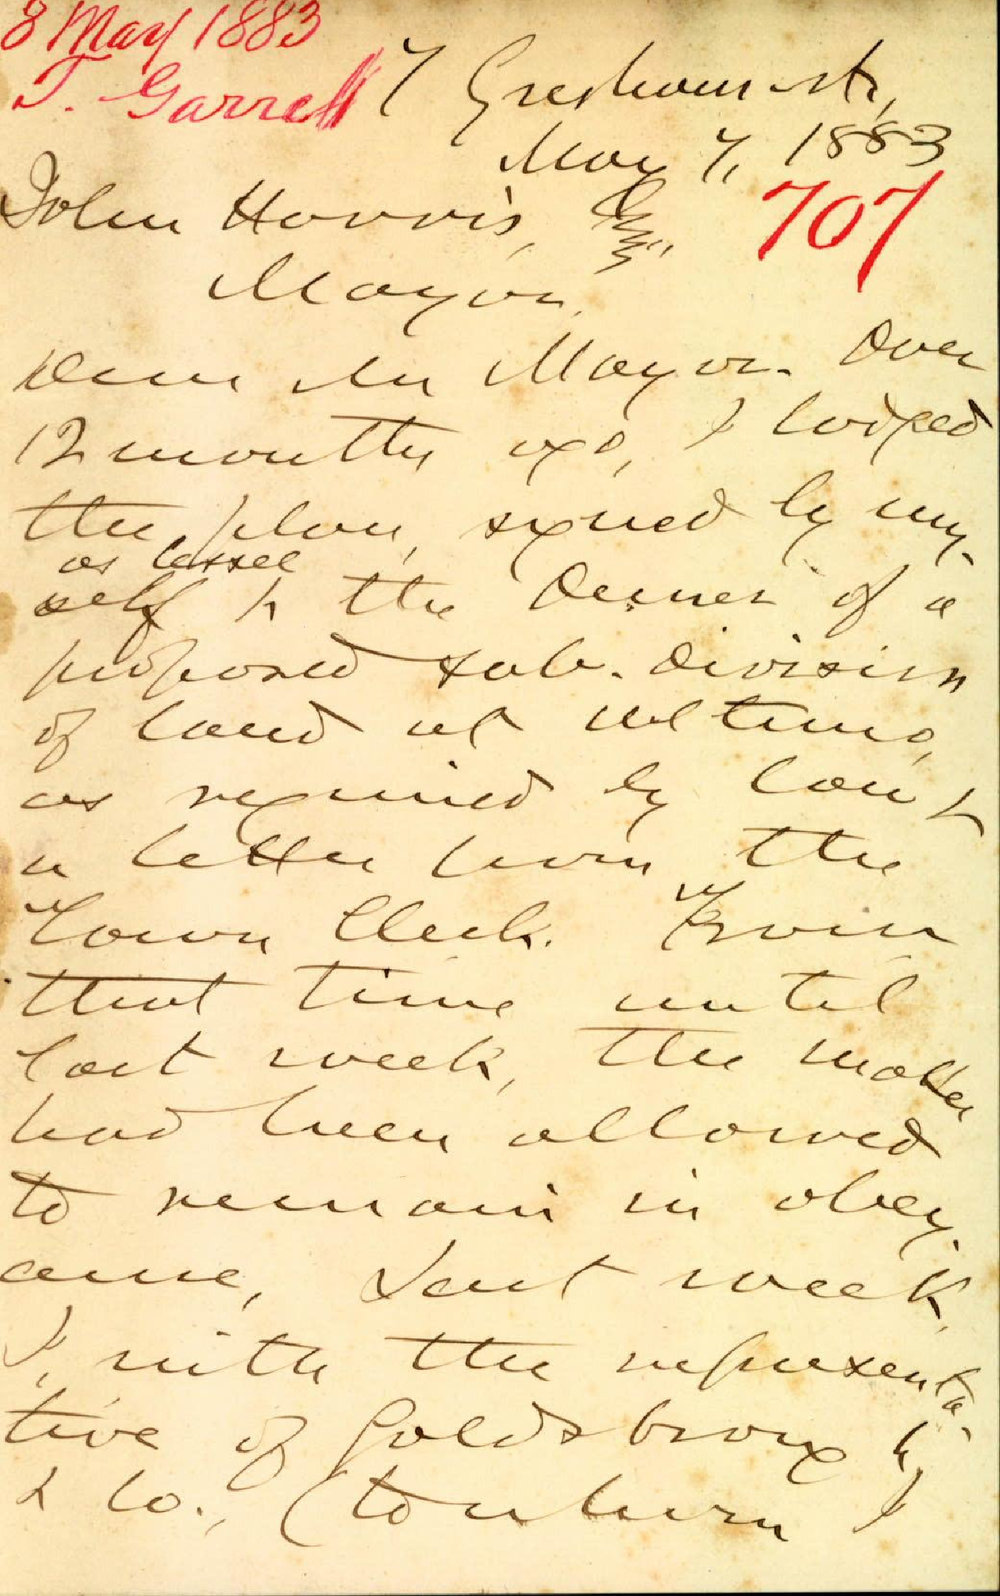 8 May 1883
T. Garrett
7 Gresham St,
May 7, 1883
707
John Harris, Esq.,
Mayor.
Dear Mr Mayor. Over
12 months ago, I lodged
the plan, signed by my-
as lessee
self & the Owner of a
proposed sub-division
of land at Ultimo,
as required by law &
a letter from the
Town Clerk. From
that time until
last week, the matter
had been allowed
to remain in abey-
ance, Last week,
I, with the representa-
tive of Goldsbrough
& Co., (to whom I